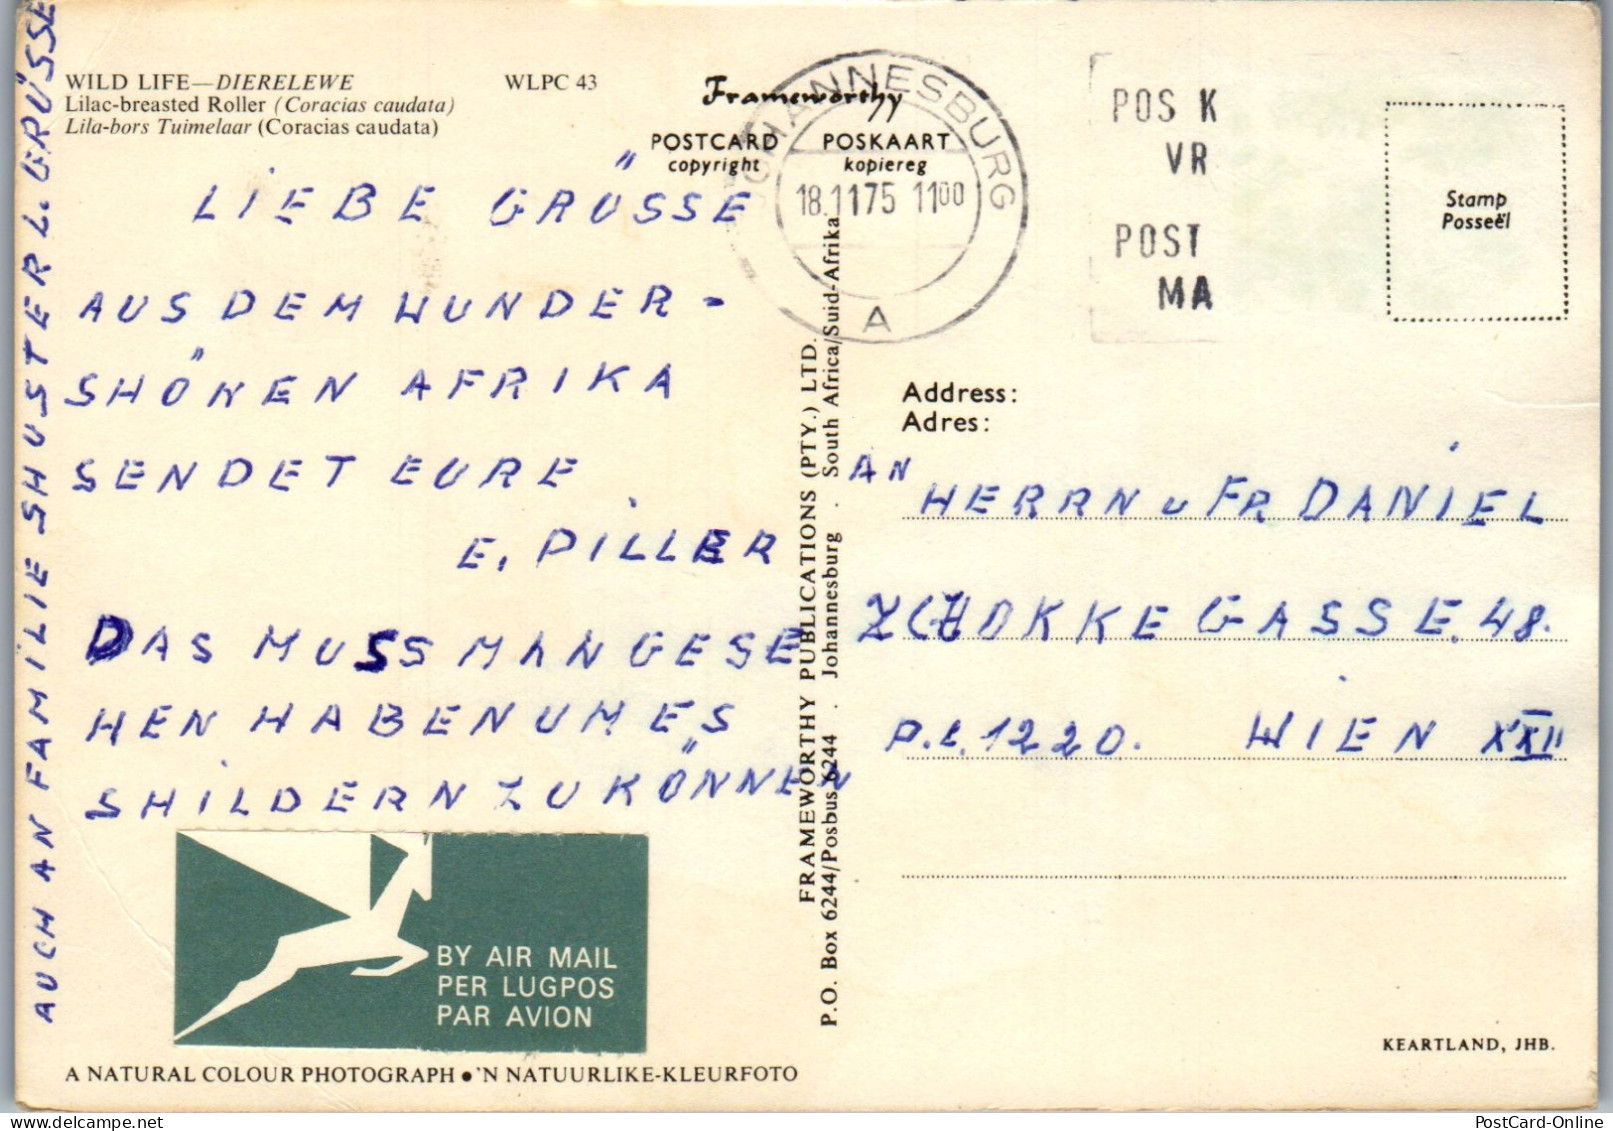 WILD LIFE—DIERELEWE WLPC 43
Lilac-breasted Roller (Coracias caudata)
Lila-bors Tuimelaar (Coracias caudata)
Frameworthy
POSTCARD POSKAART
copyright kopiereg
JOHANNESBURG
18.1175 1100
A
POS K
VR
POST
MA
Stamp
Posseël
LIEBE GRÜSSE
AUS DEM WUNDER-
SHÖNEN AFRIKA
SENDET EURE
E. PILLER
DAS MUSS MAN GESE
HEN HABEN UM ES
SHILDERN ZU KÖNNEN
AUCH AN FAMILIE SHUSTER L. GRÜSSE
BY AIR MAIL
PER LUGPOS
PAR AVION
A NATURAL COLOUR PHOTOGRAPH ● 'N NATUURLIKE-KLEURFOTO
FRAMEWORTHY PUBLICATIONS (PTY.) LTD.
P.O. Box 6244/Posbus 6244 . Johannesburg . South Africa/Suid-Afrika
Address:
Adres:
AN
HERRN u FR. DANIEL
ZCHOKKE GASSE. 48.
P.L. 1220. WIEN XXII
KEARTLAND, JHB.
PostCard-Online